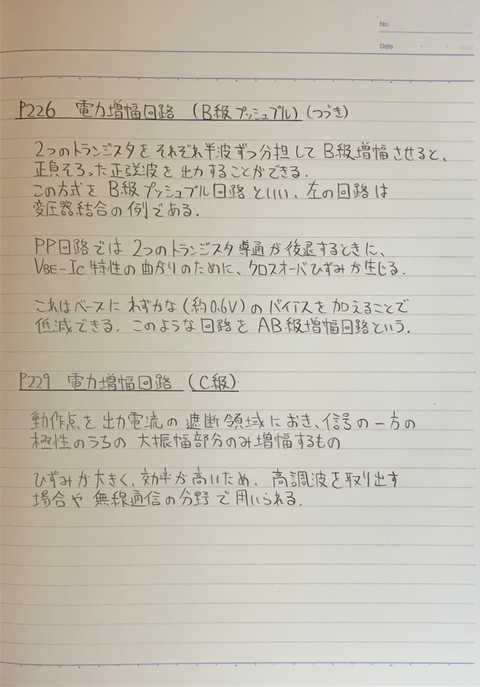 No.
Date
P226 電力増幅回路 (B級プッシュプル) (つづき)
2つのトランジスタをそれぞれ半波ずつ分担してB級増幅させると、
正負そろった正弦波を出力することができる.
この方式をB級プッシュプル回路といい、左の回路は
変圧器結合の例である.
PP回路では2つのトランジスタ導通が後退するときに、
VBE-Ic特性の曲がりのために、クロスオーバひずみが生じる.
これはベースにわずかな(約0.6V)のバイアスを加えることで
低減できる. このような回路をAB級増幅回路という.
P229 電力増幅回路 (C級)
動作点を出力電流の遮断領域におき、信号の一方の
極性のうちの大振幅部分のみ増幅するもの
ひずみが大きく、効率が高いため、高調波を取り出す
場合や無線通信の分野で用いられる.